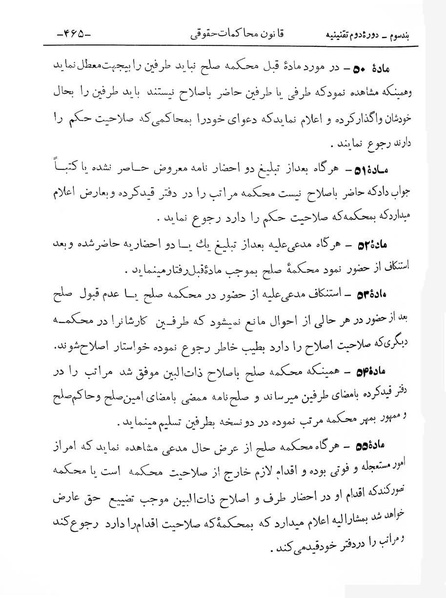 بندسوم – دورهٔ دوم تقنینیه قانون محاکمات حقوقی -۴۶۵-
مادهٔ ۵۰ – در مورد مادهٔ قبل محکمه صلح نباید طرفین را بیجهت‌معطل نماید
وهمینکه مشاهده نمودکه طرفی یا طرفین حاضر باصلاح نیستند باید طرفین را بحال
خودشان واگذارکرده و اعلام نمایدکه دعوای خودرا بمحاکمی‌که صلاحیت حکم را
دارند رجوع نمایند .
مـادهٔ ۵۱ – هرگاه بعداز تبلیغ دو احضار نامه معروض حاضر نشده یا کتباً
جواب دادکه حاضر باصلاح نیست محکمه مراتب را در دفتر قیدکرده وبعارض اعلام
میداردکه بمحکمه‌که صلاحیت حکم را دارد رجوع نماید .
مادهٔ ۵۲ – هرگاه مدعی‌علیه بعداز تبلیغ یك یـا دو احضاریه حاضرشده وبعد
استنکاف از حضور نمود محکمهٔ صلح بموجب مادهٔ‌قبل رفتارمینماید .
مادهٔ ۵۳ – استنکاف مدعی‌علیه از حضور در محکمه صلح یـا عدم قبول صلح
بعد ازحضور در هر حالی از احوال مانع نمیشود که طرفـین کارشانرا در محکمـه
دیگری‌که صلاحیت اصلاح را دارد بطیب خاطر رجوع نموده خواستار اصلاح‌شوند.
مادهٔ ۵۴ – همینکه محکمه صلح باصلاح ذات‌البین موفق شد مراتب را در
دفتر قیدکرده بامضای طرفین میرساند و صلح‌نامه ممضی بامضای امین‌صلح وحاکم‌صلح
و ممهور بمهر محکمه مرتب نموده در دونسخه بطرفین تسلیم مینماید .
مادهٔ ۵۵ – هرگاه محکمه صلح از عرض حال مدعی مشاهده نماید که امر از
امور مستعجله و فوتی بوده و اقدام لازم خارج از صلاحیت محکمه است یا محکمه
تصورکندکه اقدام او در احضار طرف و اصلاح ذات‌البین موجب تضییع حق عارض
خواهد شد بمشارالیه اعلام میدارد که بمحکمهٔ‌که صلاحیت اقدام‌را دارد رجوع‌کند
و مراتب را دردفتر خودقیدمی‌کند .